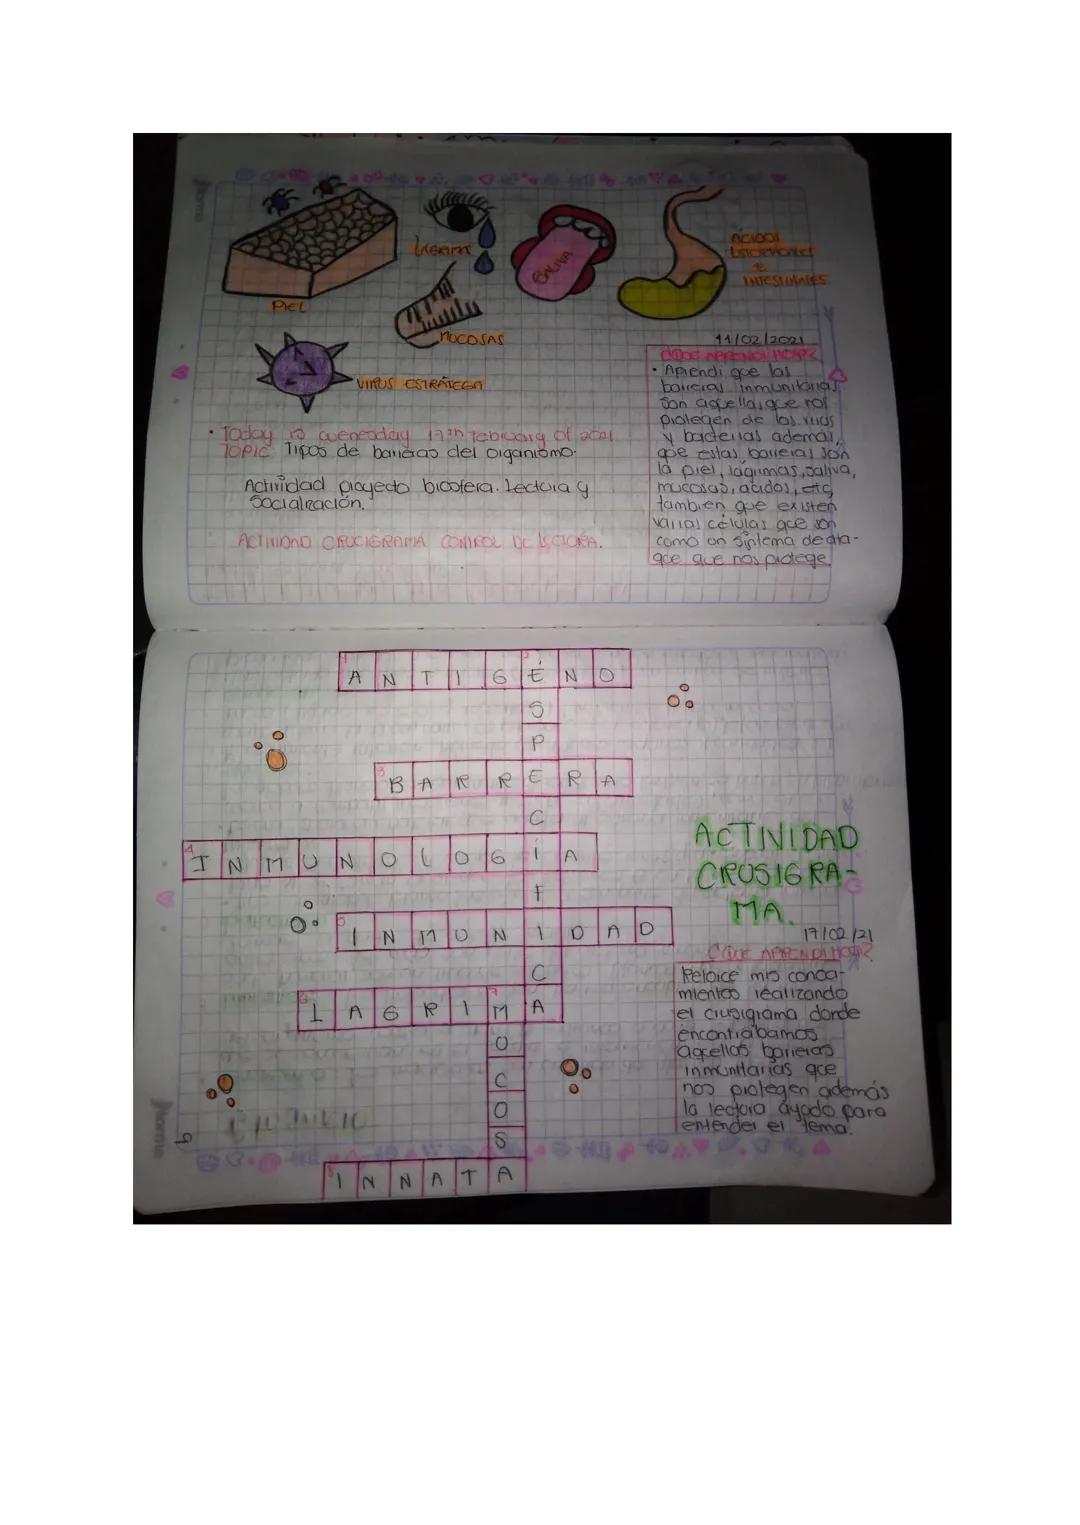 LAGRIMA
SALIVA
ÁCIDOS
ESTOMACALES
E
INTESTINALES.
PIEL
MUCOSAS
VIRUS ESTRÁTEGA
11/02/2021
¿QUE APRENDI HOY?
• Aprendi que las
barreras inmunitarias
son aquellas que nos
protegen de los virus
y bacterias además,
que estas barreras son
la piel, lágrimas, saliva,
mucosas, acidos, etc,
tambien que existen
varias células que son
como un sistema de ata-
que que nos protege.
• Today is wenesday 17th february of 2021.
TOPIC: Tipos de barreras del organismo.
Actividad proyecto biosfera. Lectura y
Socialización.
ACTIVIDAD CRUCIGRAMA CONTROL DE LECTURA.
1 ANTIGÉNO
2 ÉSPECIFICA
3 BARRERA
4 INMUNOLOGíA
5 INMUNIDAD
6 LAGRIMA
7 MUCOSA
8 INNATA
ACTIVIDAD
CRUSIGRA-
MA.
17/02/21
¿QUE APRENDI HOY?
Reforce mis conoci-
mientos realizando
el crusigrama donde
encontrabamos
aquellas barreras
inmunitarias que
nos protegen además
la lectura ayudo para
entender el tema.
norma
norma
9